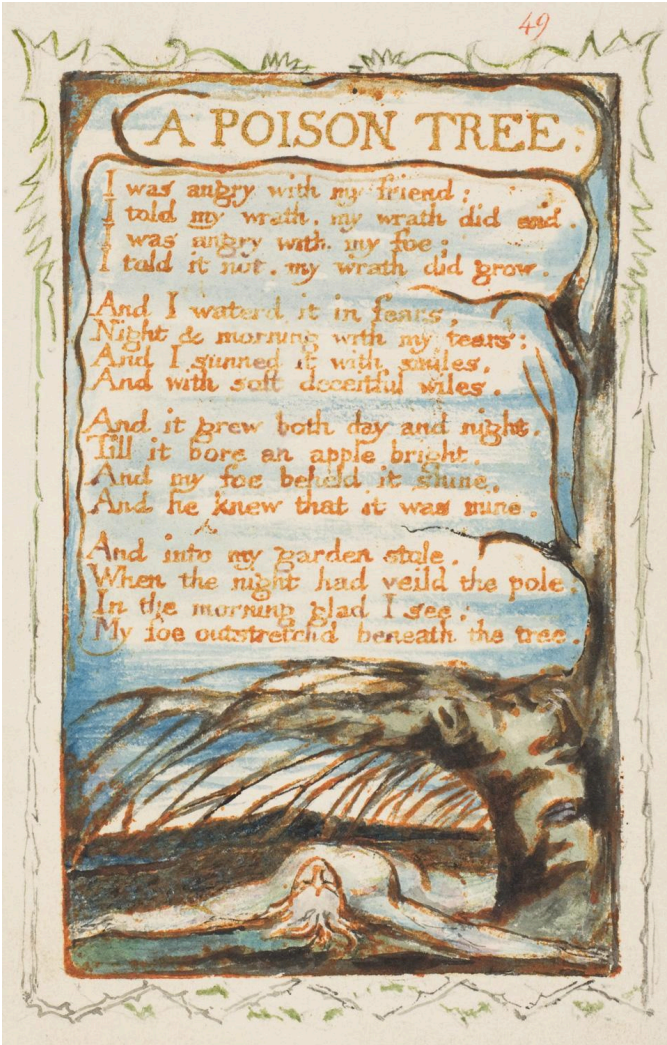 49
A POISON TREE.
I was angry with my friend;
I told my wrath, my wrath did end.
I was angry with my foe:
I told it not, my wrath did grow.
And I waterd it in fears,
Night & morning with my tears:
And I sunned it with smiles,
And with soft deceitful wiles.
And it grew both day and night,
Till it bore an apple bright.
And my foe beheld it shine,
And he knew that it was mine.
And into my garden stole,
When the night had veild the pole;
In the morning glad I see;
My foe outstretchd beneath the tree.